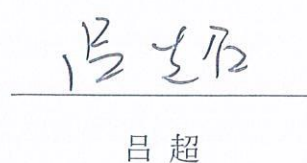 吕超
吕 超